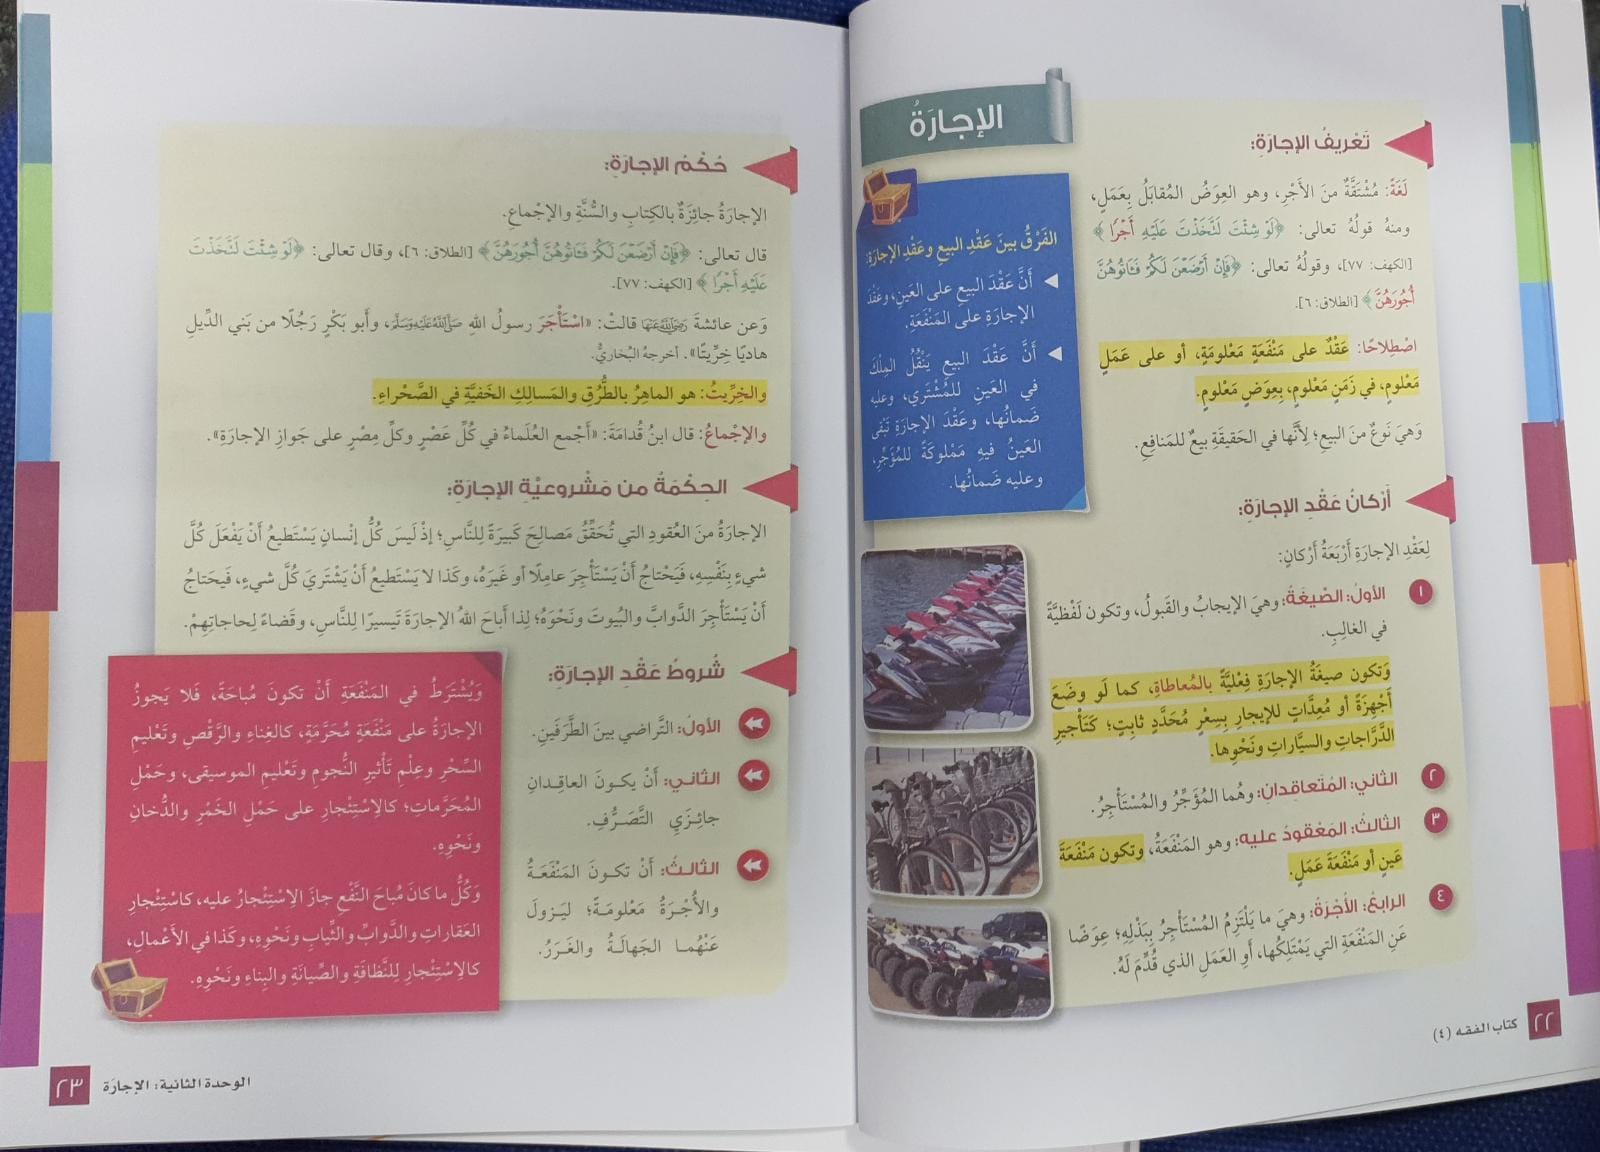 الإجارَةُ
تَعْريفُ الإجارَةِ:
لُغَةً: مُشْتَقَّةٌ منَ الأَجْرِ، وهو العِوَضُ المُقابَلُ بِعَمَلٍ،
ومنهُ قولُهُ تعالى: ﴿لَوْ شِئْتَ لَتَّخَذْتَ عَلَيْهِ أَجْرًا﴾
[الكهف: ٧٧]، وقولُهُ تعالى: ﴿فَإِنْ أَرْضَعْنَ لَكُمْ فَـَٔاتُوهُنَّ
أُجُورَهُنَّ﴾ [الطلاق: ٦].
اصْطِلاحًا: عَقْدٌ على مَنْفَعَةٍ مَعْلومَةٍ، أو على عَمَلٍ
مَعْلومٍ، في زَمَنٍ مَعْلومٍ، بِعِوَضٍ مَعْلومٍ.
وَهيَ نَوعٌ منَ البيعِ؛ لِأَنَّها في الحَقيقَةِ بيعٌ للمَنافِعِ.
الفَرْقُ بينَ عَقْدِ البيعِ وعَقْدِ الإجارَةِ:
أَنَّ عَقْدَ البيعِ على العَينِ، وعَقْدَ
الإجارَةِ على المَنْفَعَةِ.
أَنَّ عَقْدَ البيعِ يَنْقُلُ المِلْكَ
في العَينِ للمُشْتَري، وعليه
ضَمانُها، وعَقْدَ الإجارَةِ تَبْقى
العَينُ فيهِ مَمْلوكَةً للمُؤَجِّرِ،
وعليه ضَمانُها.
أَرْكانُ عَقْدِ الإجارَةِ:
لِعَقْدِ الإجارَةِ أَرْبَعَةُ أَرْكانٍ:
١ الأولُ: الصِّيغَةُ: وهيَ الإيجابُ والقَبولُ، وتكون لَفْظيَّةً
في الغالِبِ.
وَتكون صيغَةُ الإجارَةِ فِعْليَّةً بالمُعاطاةِ، كما لَو وضَعَ
أَجْهِزَةً أو مُعِدَّاتٍ للإيجارِ بِسِعْرٍ مُحَدَّدٍ ثابِتٍ؛ كَتَأْجيرِ
الدَّرَّاجاتِ والسيَّاراتِ ونَحْوِها.
٢ الثاني: المُتَعاقِدانِ: وهُما المُؤَجِّرُ والمُسْتَأْجِرُ.
٣ الثالثُ: المَعْقودُ عليه: وهو المَنْفَعَةُ، وتكون مَنْفَعَةَ
عَينٍ أو مَنْفَعَةَ عَمَلٍ.
٤ الرابعُ: الأُجْرَةُ: وهيَ ما يَلْتَزِمُ المُسْتَأْجِرُ بِبَذْلِهِ؛ عِوَضًا
عَنِ المَنْفَعَةِ التي يَمْتَلِكُها، أَوِ العَمَلِ الذي قُدِّمَ لَهُ.
٢٢ كتاب الفقه (٤)
حُكْمُ الإجارَةِ:
الإجارَةُ جائِزَةٌ بالكِتابِ والسُّنَّةِ والإجْماعِ.
قال تعالى: ﴿فَإِنْ أَرْضَعْنَ لَكُمْ فَـَٔاتُوهُنَّ أُجُورَهُنَّ﴾ [الطلاق: ٦]، وقال تعالى: ﴿لَوْ شِئْتَ لَتَّخَذْتَ
عَلَيْهِ أَجْرًا﴾ [الكهف: ٧٧].
وَعن عائشةَ رَضِيَ اللهُ عَنْهَا قالتْ: «اسْتَأْجَرَ رسولُ اللهِ صَلَّى اللهُ عَلَيْهِ وَسَلَّمَ، وأَبو بَكْرٍ رَجُلًا من بَني الدِّيلِ
هاديًا خِرِّيتًا». أخرجهُ البُخاريُّ.
والخِرِّيتُ: هو الماهِرُ بالطُّرُقِ والمَسالِكِ الخَفيَّةِ في الصَّحْراءِ.
والإجْماعُ: قال ابنُ قُدامَةَ: «أَجْمع العُلَماءُ في كُلِّ عَصْرٍ وكلِّ مِصْرٍ على جَوازِ الإجارَةِ».
الحِكْمَةُ من مَشْروعيَّةِ الإجارَةِ:
الإجارَةُ منَ العُقودِ التي تُحَقِّقُ مَصالِحَ كَبيرَةً لِلنَّاسِ؛ إذْ لَيسَ كُلُّ إنْسانٍ يَسْتَطيعُ أَنْ يَفْعَلَ كُلَّ
شيءٍ بِنَفْسِهِ، فَيَحْتاجُ أَنْ يَسْتَأْجِرَ عامِلًا أو غَيرَهُ، وكَذا لا يَسْتَطيعُ أَنْ يَشْتَريَ كُلَّ شيءٍ، فَيَحْتاجُ
أَنْ يَسْتَأْجِرَ الدَّوابَّ والبُيوتَ ونَحْوَهُ؛ لِذا أَباحَ اللهُ الإجارَةَ تَيسيرًا لِلنَّاسِ، وقَضاءً لِحاجاتِهِمْ.
شُروطُ عَقْدِ الإجارَةِ:
الأولُ: التَّراضي بينَ الطَّرَفَينِ.
الثاني: أَنْ يكونَ العاقِدانِ
جائِزَي التَّصَرُّفِ.
الثالثُ: أَنْ تكونَ المَنْفَعَةُ
والأُجْرَةُ مَعْلومَةً؛ لِيَزولَ
عَنْهُما الجَهالَةُ والغَرَرُ.
وَيُشْتَرَطُ في المَنْفَعَةِ أَنْ تكونَ مُباحَةً، فَلا يَجوزُ
الإجارَةُ على مَنْفَعَةٍ مُحَرَّمَةٍ، كالغِناءِ والرَّقْصِ وتَعْليمِ
السِّحْرِ وعِلْمِ تَأْثيرِ النُّجومِ وتَعْليمِ الموسيقى، وحَمْلِ
المُحَرَّماتِ؛ كالاِسْتِئْجارِ على حَمْلِ الخَمْرِ والدُّخانِ
ونَحْوِهِ.
وَكُلُّ ما كانَ مُباحَ النَّفْعِ جازَ الاِسْتِئْجارُ عليه، كاسْتِئْجارِ
العَقاراتِ والدَّوابِّ والثِّيابِ ونَحْوِهِ، وكَذا في الأَعْمالِ،
كالاِسْتِئْجارِ لِلنَّظافَةِ والصِّيانَةِ والبِناءِ ونَحْوِهِ.
الوحدة الثانية: الإجارَة ٢٣